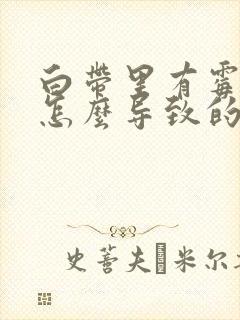 白带里有霉
怎麼导致的
史蒂夫 米尔